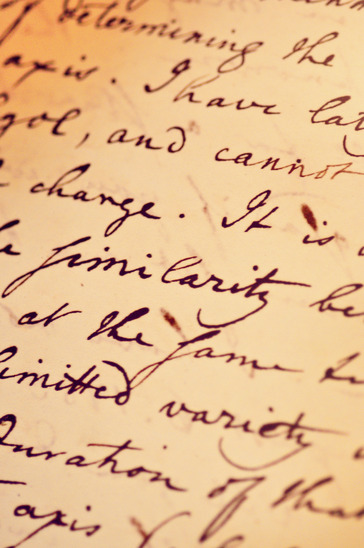 determining the
axis. I have
and cannot
change. It is
similarity
at the same
variety
Duration of that
axis